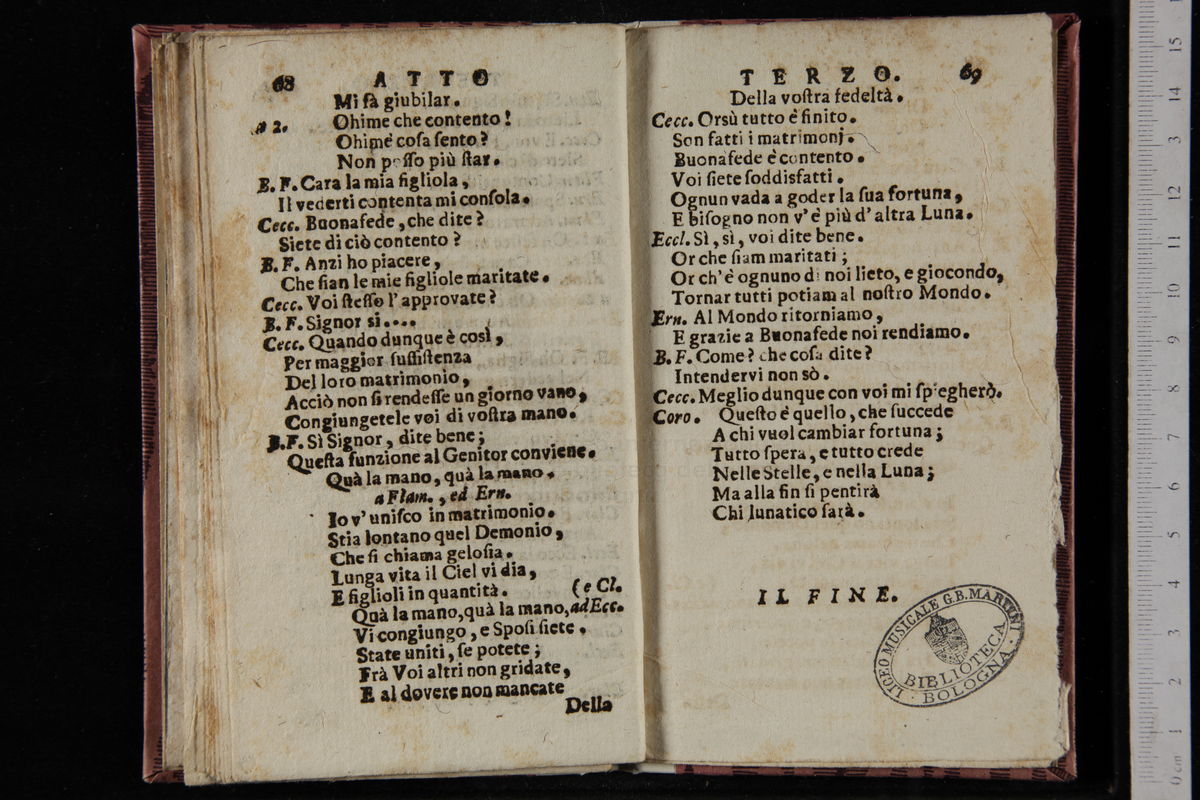 68 ATTO
Mi fà giubilar.
a 2. Ohime che contento!
Ohimè cosa sento?
Non posso più star.
B. F. Cara la mia figliola,
Il vederti contenta mi consola.
Cecc. Buonafede, che dite?
Siete di ciò contento?
B. F. Anzi ho piacere,
Che sian le mie figliole maritate.
Cecc. Voi stesso l'approvate?
B. F. Signor sì....
Cecc. Quando dunque è così,
Per maggior sussistenza
Del loro matrimonio,
Acciò non si rendesse un giorno vano,
Congiungetele voi di vostra mano.
B.F. Sì Signor, dite bene;
Questa funzione al Genitor conviene.
Quà la mano, quà la mano.
a Flam., ed Ern.
Io v'unisco in matrimonio.
Stia lontano quel Demonio,
Che si chiama gelosia.
Lunga vita il Ciel vi dia,
E figlioli in quantità. (e Cl.
Quà la mano, quà la mano, ad Ecc.
Vi congiungo, e Sposi siete.
State uniti, se potete;
Frà Voi altri non gridate,
E al dovere non mancate
Della
TERZO. 69
Della vostra fedeltà.
Cecc. Orsù tutto è finito.
Son fatti i matrimonj.
Buonafede è contento.
Voi siete soddisfatti.
Ognun vada a goder la sua fortuna,
E bisogno non v'è più d'altra Luna.
Eccl. Sì, sì, voi dite bene.
Or che siam maritati;
Or ch'è ognuno di noi lieto, e giocondo,
Tornar tutti potiam al nostro Mondo.
Ern. Al Mondo ritorniamo,
E grazie a Buonafede noi rendiamo.
B. F. Come? che cosa dite?
Intendervi non sò.
Cecc. Meglio dunque con voi mi spiegherò.
Coro. Questo è quello, che succede
A chi vuol cambiar fortuna;
Tutto spera, e tutto crede
Nelle Stelle, e nella Luna;
Ma alla fin si pentirà
Chi lunatico sarà.
IL FINE.
LICEO MUSICALE G.B. MARTINI
BIBLIOTECA
· BOLOGNA ·
0 cm 1 2 3 4 5 6 7 8 9 10 11 12 13 14 15